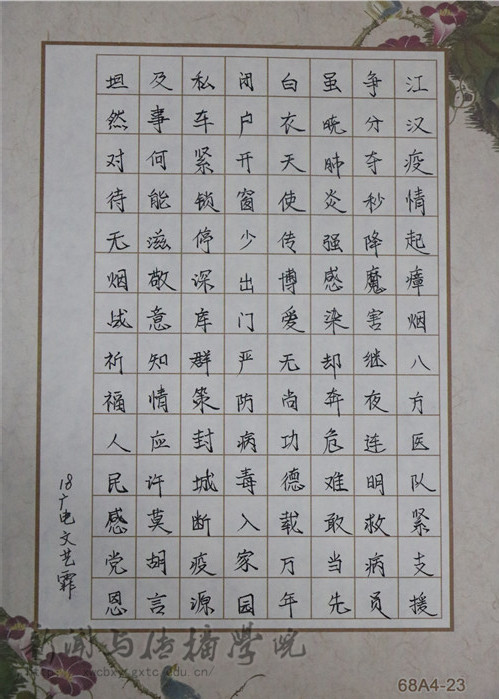 江汉疫情起瘴烟八方医队紧支援
争分夺秒降魔害继夜连明救病员
虽晓肺炎强感染却奔危难敢当先
白衣天使传博爱无尚功德载万年
闭户开窗少出门严防病毒入家园
私车紧锁停深库群策封城断疫源
及事何能滋敬意知情应许莫胡言
坦然对待无烟战祈福人民感党恩
18广电文艺霏
新闻与传播学院
68A4-23